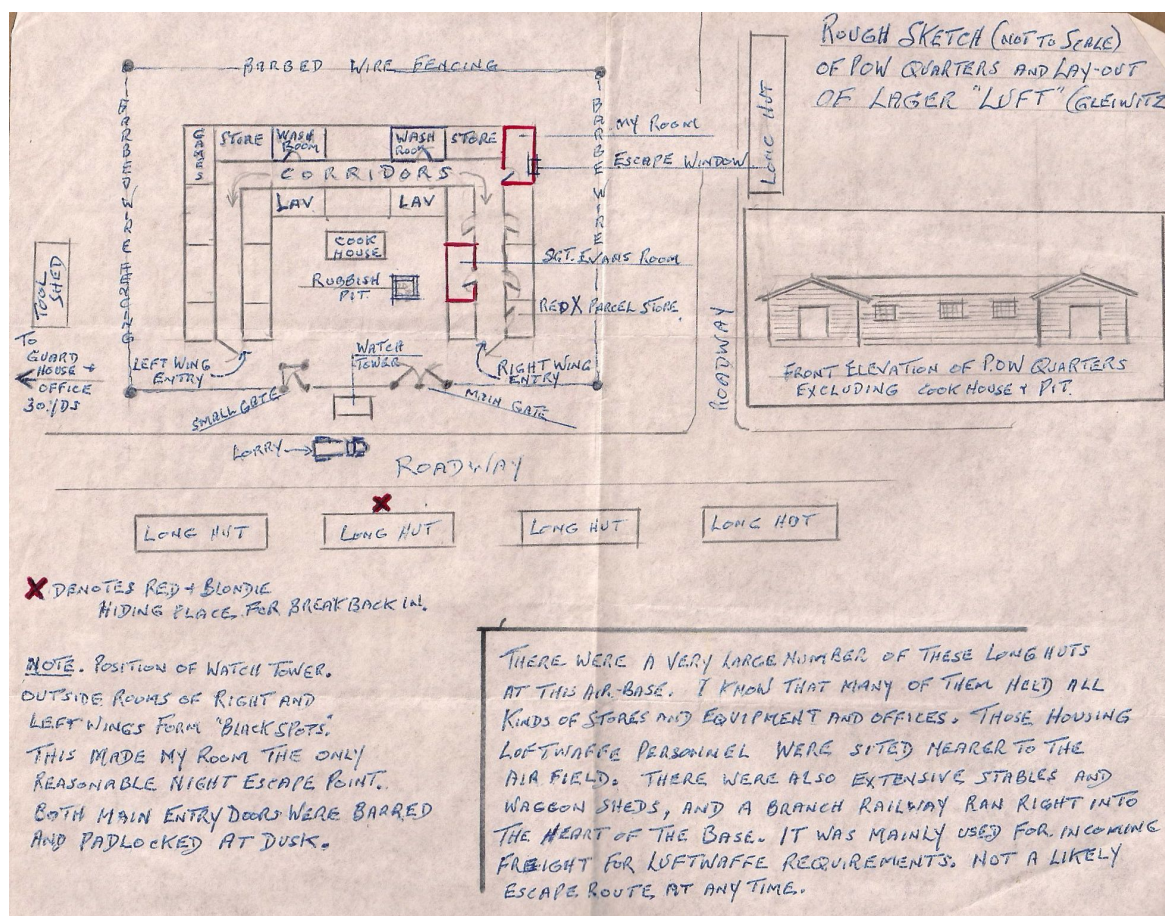 ROUGH SKETCH (NOT TO SCALE)
OF POW QUARTERS AND LAY-OUT
OF LAGER "LUFT" (GLEIWITZ
BARBED WIRE FENCING
BARBED WIRE FENCING
BARBE WIRE
GAMES
STORE
WASH
ROOM
WASH
ROOM
STORE
MY ROOM
ESCAPE WINDOW
LONG HUT
CORRIDORS
LAV
LAV
COOK
HOUSE
RUBBISH
PIT.
SGT. EVANS ROOM
RED X PARCEL STORE.
TOOL
SHED
TO
GUARD
HOUSE +
OFFICE
30 YDS
LEFT WING
ENTRY
WATCH
TOWER
RIGHT WING
ENTRY
SMALL GATE
MAIN GATE
ROADWAY
FRONT ELEVATION OF P.O.W QUARTERS
EXCLUDING COOK HOUSE + PIT.
LORRY
ROADWAY
X
LONG HUT
LONG HUT
LONG HUT
LONG HUT
X DENOTES RED + BLONDIE
HIDING PLACE FOR BREAK BACK IN.
NOTE. POSITION OF WATCH TOWER.
OUTSIDE ROOMS OF RIGHT AND
LEFT WINGS FORM "BLACK SPOTS."
THIS MADE MY ROOM THE ONLY
REASONABLE NIGHT ESCAPE POINT.
BOTH MAIN ENTRY DOORS WERE BARRED
AND PADLOCKED AT DUSK.
THERE WERE A VERY LARGE NUMBER OF THESE LONG HUTS
AT THIS AIR-BASE. I KNOW THAT MANY OF THEM HELD ALL
KINDS OF STORES AND EQUIPMENT AND OFFICES. THOSE HOUSING
LUFTWAFFE PERSONNEL WERE SITED NEARER TO THE
AIR FIELD. THERE WERE ALSO EXTENSIVE STABLES AND
WAGGON SHEDS, AND A BRANCH RAILWAY RAN RIGHT INTO
THE HEART OF THE BASE. IT WAS MAINLY USED FOR INCOMING
FREIGHT FOR LUFTWAFFE REQUIREMENTS. NOT A LIKELY
ESCAPE ROUTE AT ANY TIME.